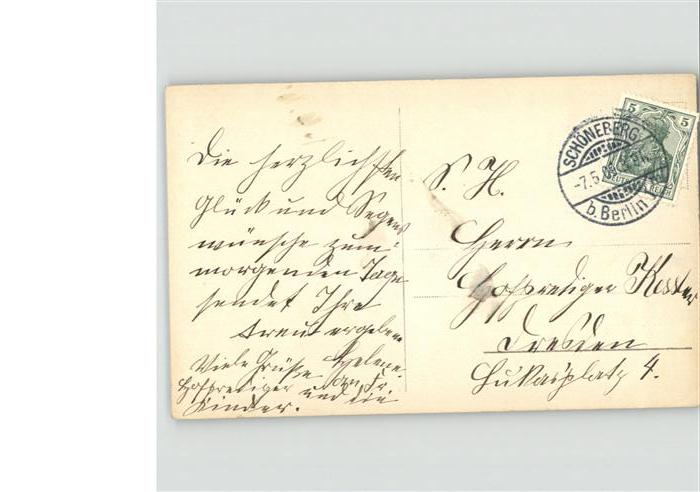 Die herzlichsten
Glück und Segens
wünsche zum
morgenden Tage
sendet Ihre
treu ergebene
Helene.
Viele Grüße an Fr.
Hofprediger und die
Kinder.
S. H.
Herrn
Hofprediger Kessler
Dresden
Lukasplatz 4.
SCHÖNEBERG
-7.5.09
b. Berlin
5 5